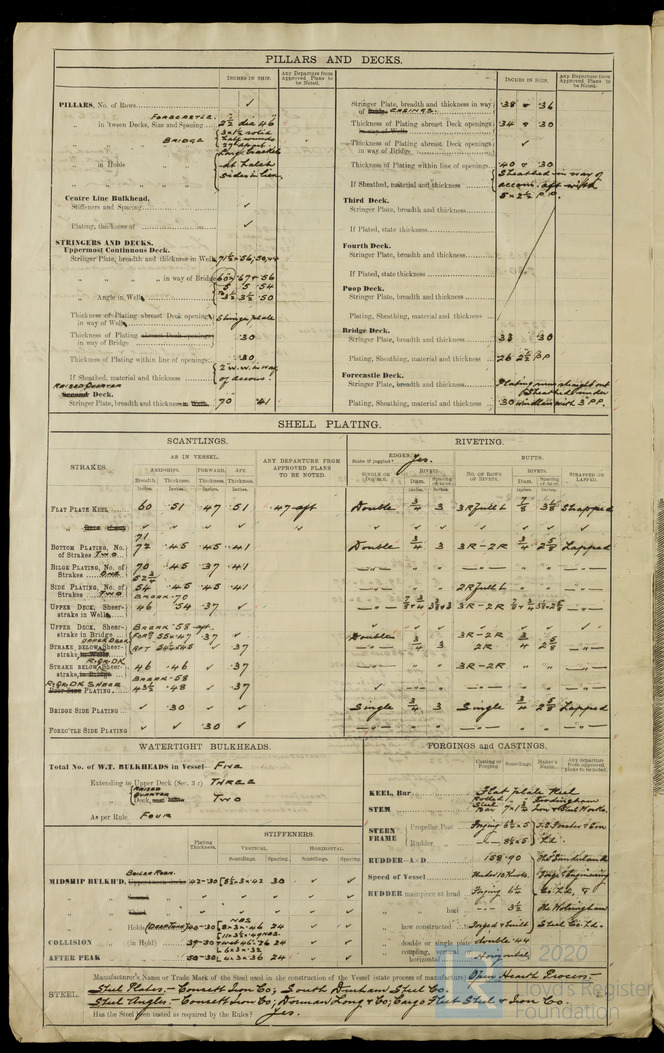 PILLARS AND DECKS.
INCHES IN SHIP. Any Departure from Approved Plans to be Noted. INCHES IN SHIP. Any Departure from Approved Plans to be Noted.
PILLARS, No. of Rows ✓
FORECASTLE.
„ in 'tween Decks, Size and Spacing 2½ dia 46
BRIDGE 3x1½ solid
„ in Holds
at hatch
sides in lieu
Centre Line Bulkhead.
Stiffeners and Spacing ✓
Plating, thickness of ✓
STRINGERS AND DECKS.
Uppermost Continuous Deck.
Stringer Plate, breadth and thickness in Wells
„ „ „ „ in way of Bridge 60 x .67 & 56
„ Angle in Wells 3½ 3½ .50
Thickness of Plating abreast Deck openings in way of Wells Stringer plate
Thickness of Plating abreast Deck openings in way of Bridge .30
Thickness of Plating within line of openings .30
If Sheathed, material and thickness 2" W.W. in way of accom.
RAISED QUARTER
Second Deck.
Stringer Plate, breadth and thickness in Wells 70 .41
Stringer Plate, breadth and thickness in way of Bridge .38 & .36
Thickness of Plating abreast Deck openings in way of Wells .34 & .30
Thickness of Plating abreast Deck openings in way of Bridge ✓
Thickness of Plating within line of openings .40 & .30
If Sheathed, material and thickness Sheathed in way of accom. aft with 5 x 2½ P.P.
Third Deck.
Stringer Plate, breadth and thickness
If Plated, state thickness
Fourth Deck.
Stringer Plate, breadth and thickness
If Plated, state thickness
Poop Deck.
Stringer Plate, breadth and thickness
Plating, Sheathing, material and thickness
Bridge Deck.
Stringer Plate, breadth and thickness 33 .30
Plating, Sheathing, material and thickness .26 2½ P.P
Forecastle Deck.
Stringer Plate, breadth and thickness Plating runs straight out
Sheathed under
Plating, Sheathing, material and thickness .30 windlass with 3" P.P.
SHELL PLATING.
SCANTLINGS. RIVETING.
STRAKES. AS IN VESSEL. ANY DEPARTURE FROM APPROVED PLANS TO BE NOTED. EDGES. State if joggled? Yes. BUTTS.
AMIDSHIPS. FORWARD. AFT. SINGLE OR DOUBLE. RIVETS. NO. OF ROWS OF RIVETS. RIVETS. STRAPPED OR LAPPED.
Breadth. Thickness. Thickness. Thickness. Diam. Spacing Diam. Spacing
Inches. Inches. Inches. Inches.
FLAT PLATE KEEL 60 .51 .47 .51 .47 aft Double ¾ 3 3R full L ⅞ Strapped
BOTTOM PLATING, No. of Strakes TWO 71 72 .45 .45 .41 Double ¾ 3 3R - 2R ¾ 2⅝ Lapped
BILGE PLATING, No. of Strakes ONE 70 .45 .37 .41
SIDE PLATING, No. of Strakes TWO 54 .45 .45 .41 2R full L
BREAK .70
UPPER DECK, Sheerstrake in Wells 46 .54 .37 ✓ 3R - 2R
UPPER DECK, Sheerstrake in Bridge BREAK .58 aft .37 ✓ Double 3R - 2R
STRAKE BELOW Sheerstrake in Wells UPPER DECK ✓ .37 ¾ 3 2R ¾ 2⅝
STRAKE BELOW Sheerstrake, in Bridge R.QR.DK 46 .46 ✓ .37 3R - 2R
BREAK .58
R.QR.DK SHEER PLATING 43½ .48 ✓ .37
BRIDGE SIDE PLATING ✓ .30 ✓ ✓ Single ¾ 3 Single ¾ 2⅝ Lapped
FORECTLE SIDE PLATING ✓ ✓ .30 ✓
WATERTIGHT BULKHEADS.
Total No. of W.T. BULKHEADS in Vessel FIVE
Extending to Upper Deck (Sec. 3 c) THREE
RAISED QUARTER
„ Deck TWO
As per Rule FOUR
STIFFENERS.
Plating Thickness. VERTICAL. HORIZONTAL.
Scantlings. Spacing. Scantlings. Spacing.
BOILER ROOM.
MIDSHIP BULKH'D, Uppermost deck .42-.30 30 ✓ ✓
Holds (DEEP TANK) .40-.30 24 ✓ ✓
COLLISION (in Hold) .39-.30 24 ✓ ✓
AFTER PEAK .50-.30 24 ✓ ✓
FORGINGS and CASTINGS.
Casting or Forging. Scantlings. Maker's Name. Any departure from approved plans to be noted.
KEEL, Bar Flat plate Keel
STEM Rolled Steel Bar Frodingham Iron & Steel Works.
STERN FRAME Propeller Post Forging T.S. Forster & Son
Rudder „ Ld.
RUDDER—A × D 158.90 The Sunderland
Speed of Vessel Under 10 Knots. Forge & Engineering
RUDDER mainpiece at head Forging 6¼ Co. Ld. &
„ „ heel 3½ The Wolsingham
„ how constructed Forged & Built Steel Co. Ld.
„ double or single plate double .44
„ coupling, horizontal Horizontal
STEEL. Manufacturer's Name or Trade Mark of the Steel used in the construction of the Vessel (state process of manufacture) Open Hearth Process:-
Steel Plates:- Consett Iron Co; South Durham Steel Co.
Steel Angles:- Consett Iron Co; Dorman Long & Co; Cargo Fleet Steel & Iron Co.
Has the Steel been tested as required by the Rules? Yes.
2020
Lloyd's Register
Foundation